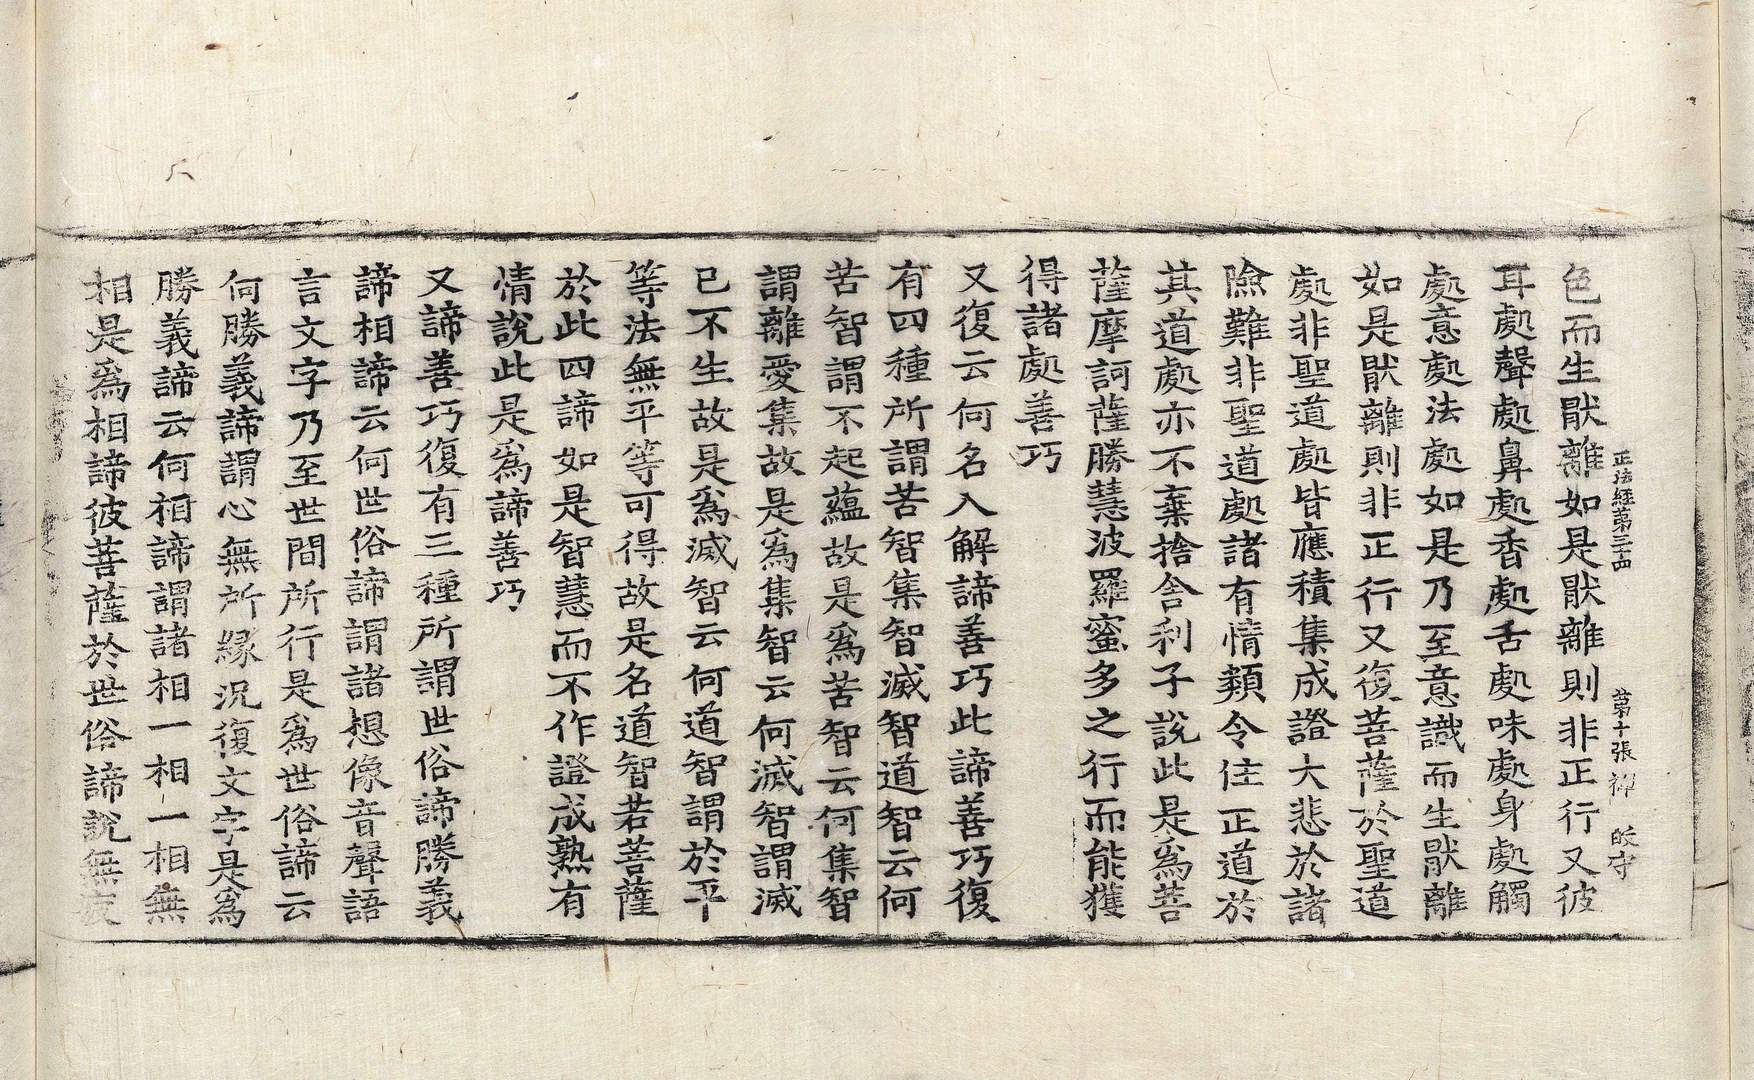 正法經第三十四 第十張 禪 皎守
色而生猒離如是猒離則非正行又彼
耳處聲處鼻處香處舌處味處身處觸
處意處法處如是乃至意識而生猒離
如是猒離則非正行又復菩薩於聖道
處非聖道處皆應積集成證大悲於諸
險難非聖道處諸有情類令住正道於
其道處亦不棄捨舍利子說此是爲菩
薩摩訶薩勝慧波羅蜜多之行而能獲
得諸處善巧
又復云何名入解諦善巧此諦善巧復
有四種所謂苦智集智滅智道智云何
苦智謂不起蘊故是爲苦智云何集智
謂離愛集故是爲集智云何滅智謂滅
已不生故是爲滅智云何道智謂於平
等法無平等可得故是名道智若菩薩
於此四諦如是智慧而不作證成熟有
情說此是爲諦善巧
又諦善巧復有三種所謂世俗諦勝義
諦相諦云何世俗諦謂諸想像音聲語
言文字乃至世間所行是爲世俗諦云
何勝義諦謂心無所緣況復文字是爲
勝義諦云何相諦謂諸相一相一相無
相是爲相諦彼菩薩於世俗諦說無疲